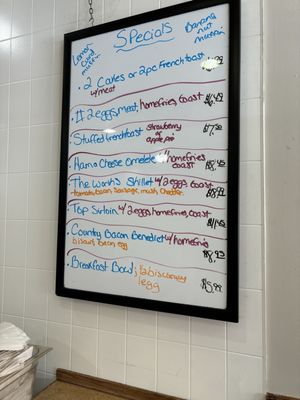 Specials
Lemon
Curd
muffin
Banana
nut
muffin
• 2 Cakes or 2pc French toast
w/meat
• #1 2 eggs, meat, homefries, toast
• Stuffed french toast Strawberry
or
apple pie $7.50
• Ham & Cheese Omelette w/ homefries
toast
• The Works Skillet w/ 2 eggs toast
tomato, bacon, Sausage, mush, Cheddar
• Top Sirloin w/ 2 eggs, homefries, toast
• Country Bacon Benedict w/ homefries
biscuit, bacon, egg
• Breakfast Bowl 1/2 biscuit gravy
1 egg $5.99